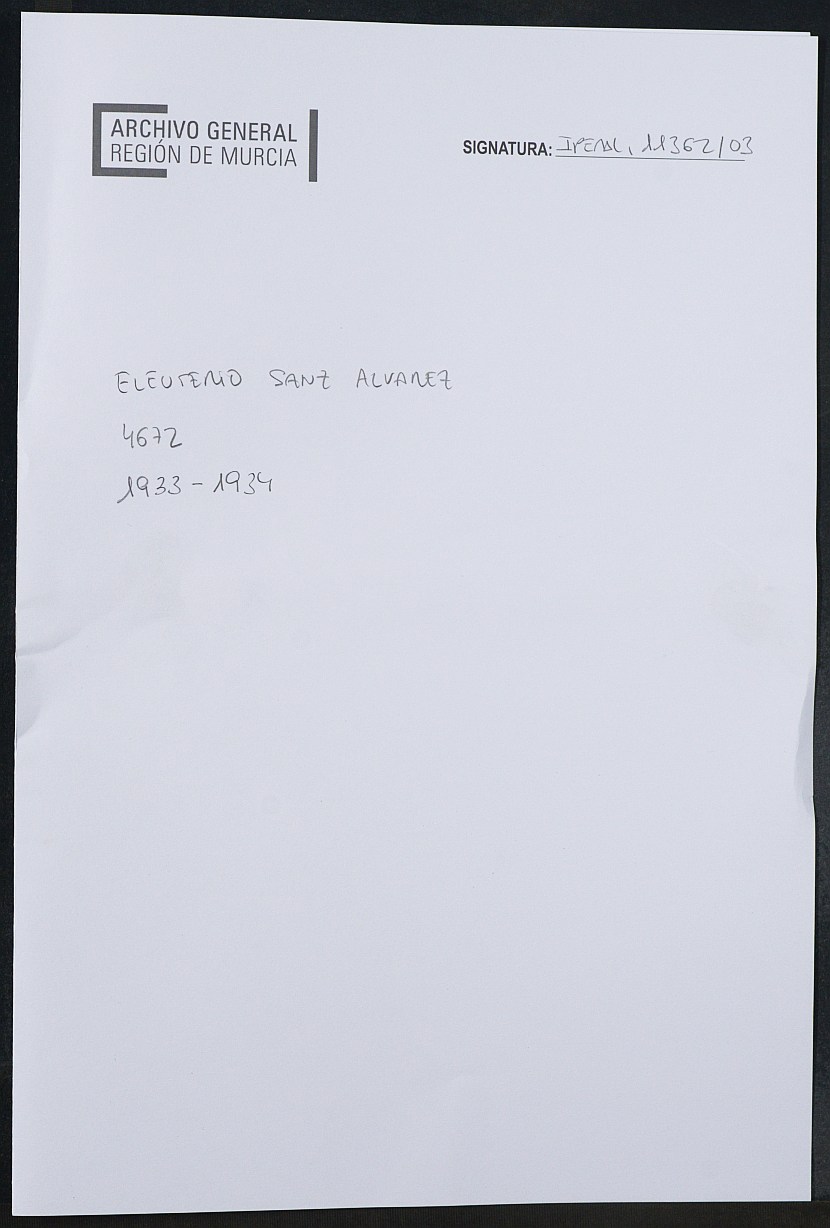 ARCHIVO GENERAL
REGIÓN DE MURCIA
SIGNATURA: IPEAL, 11362/03
ELEUTERIO SANZ ALVAREZ
4672
1933 - 1934